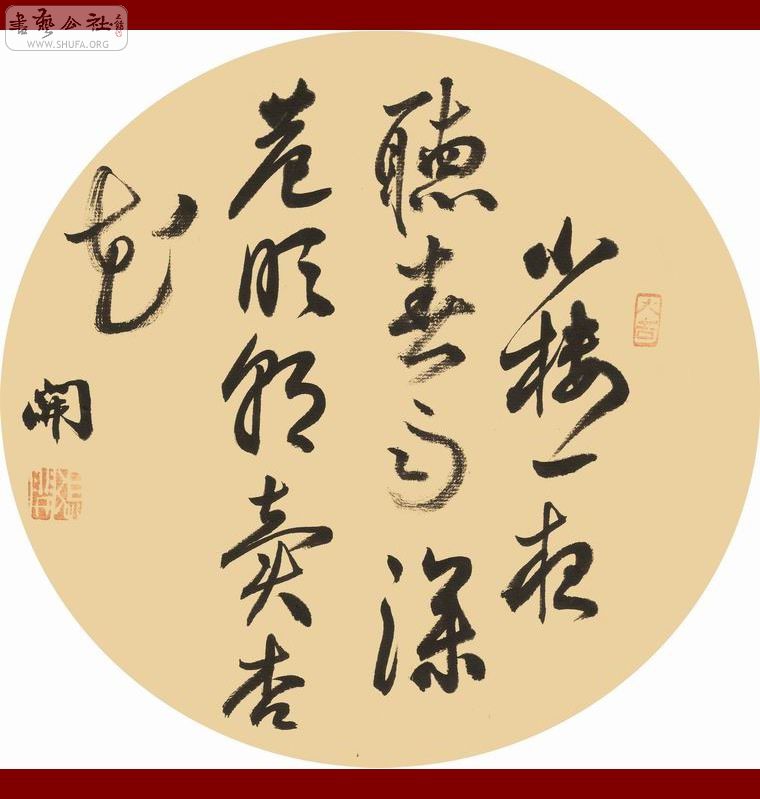 書藝公社
WWW.SHUFA.ORG
小楼一夜
聽春雨深
巷明朝賣杏
花
開
大吉